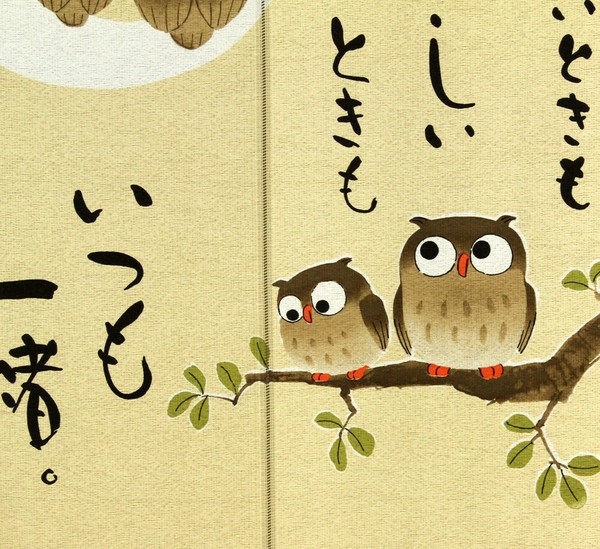 いときも
しい
ときも
いつも
一緒。